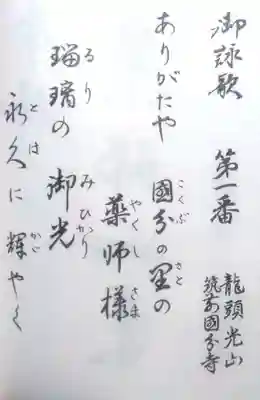 御詠歌　第一番
龍頭光山
筑前國分寺
ありがたや
國分の里の
こくぶ　さと
薬師様
やくし　さま
瑠璃の　御光
るり　みひかり
永久に輝やく
とは　かゞ